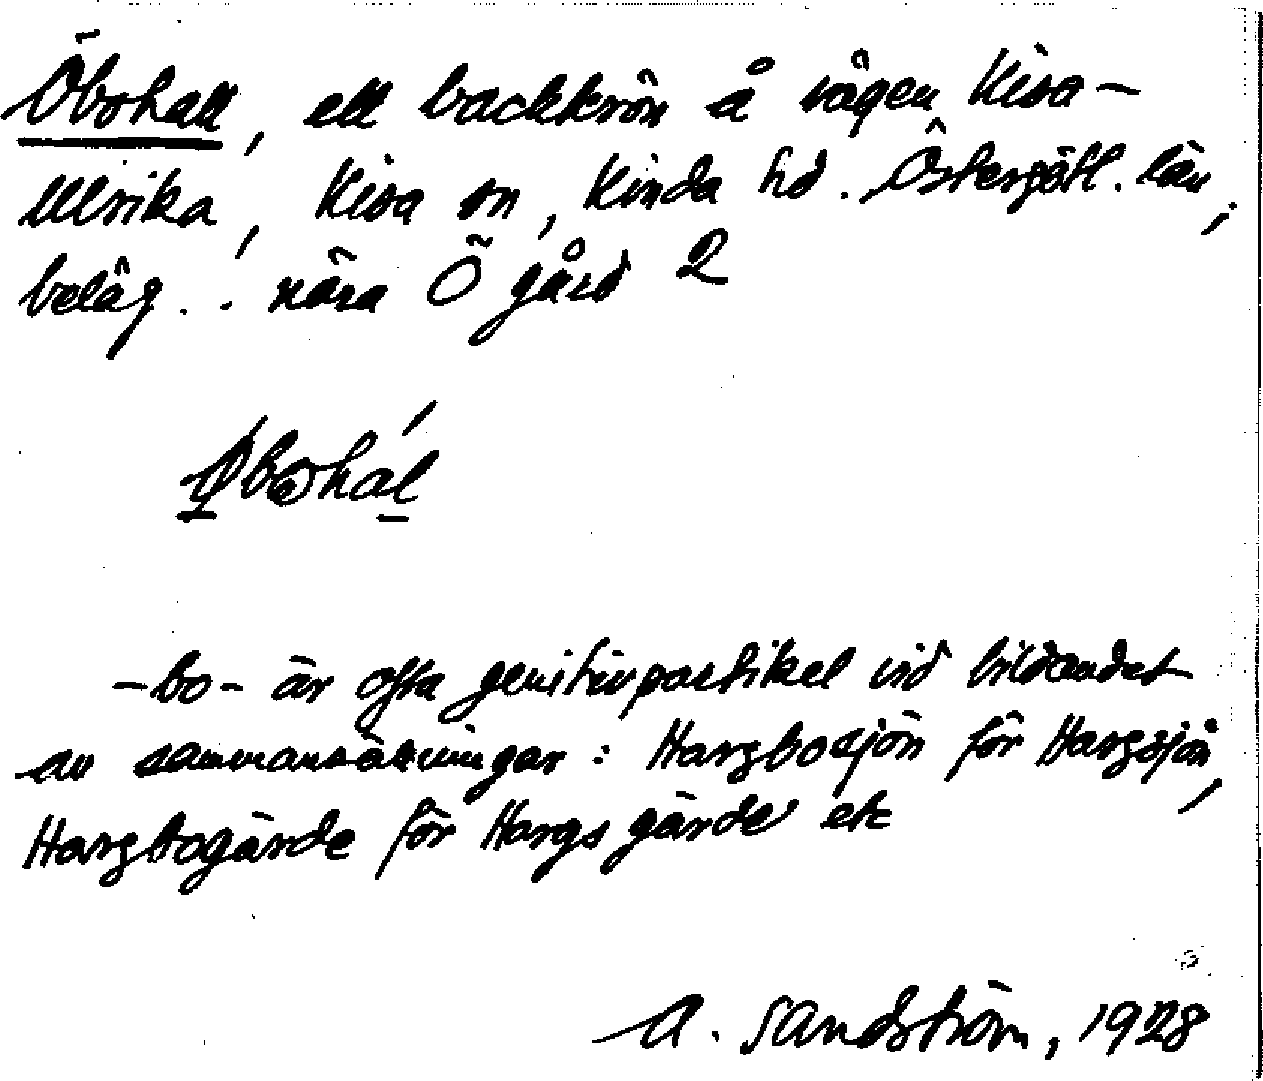 Öbohall, ett backkrön å vägen Kisa-
Ulrika, Kisa sn, Kinda hd. Östergötl. län;
beläg. . nära Ö gård 2
-bo- är ofta genitivpartikel vid bildandet
av sammansättningar: Hargbosjön för Hargsjön,
Hargbogärde för Hargs gärde etc
A. Sandström, 1928